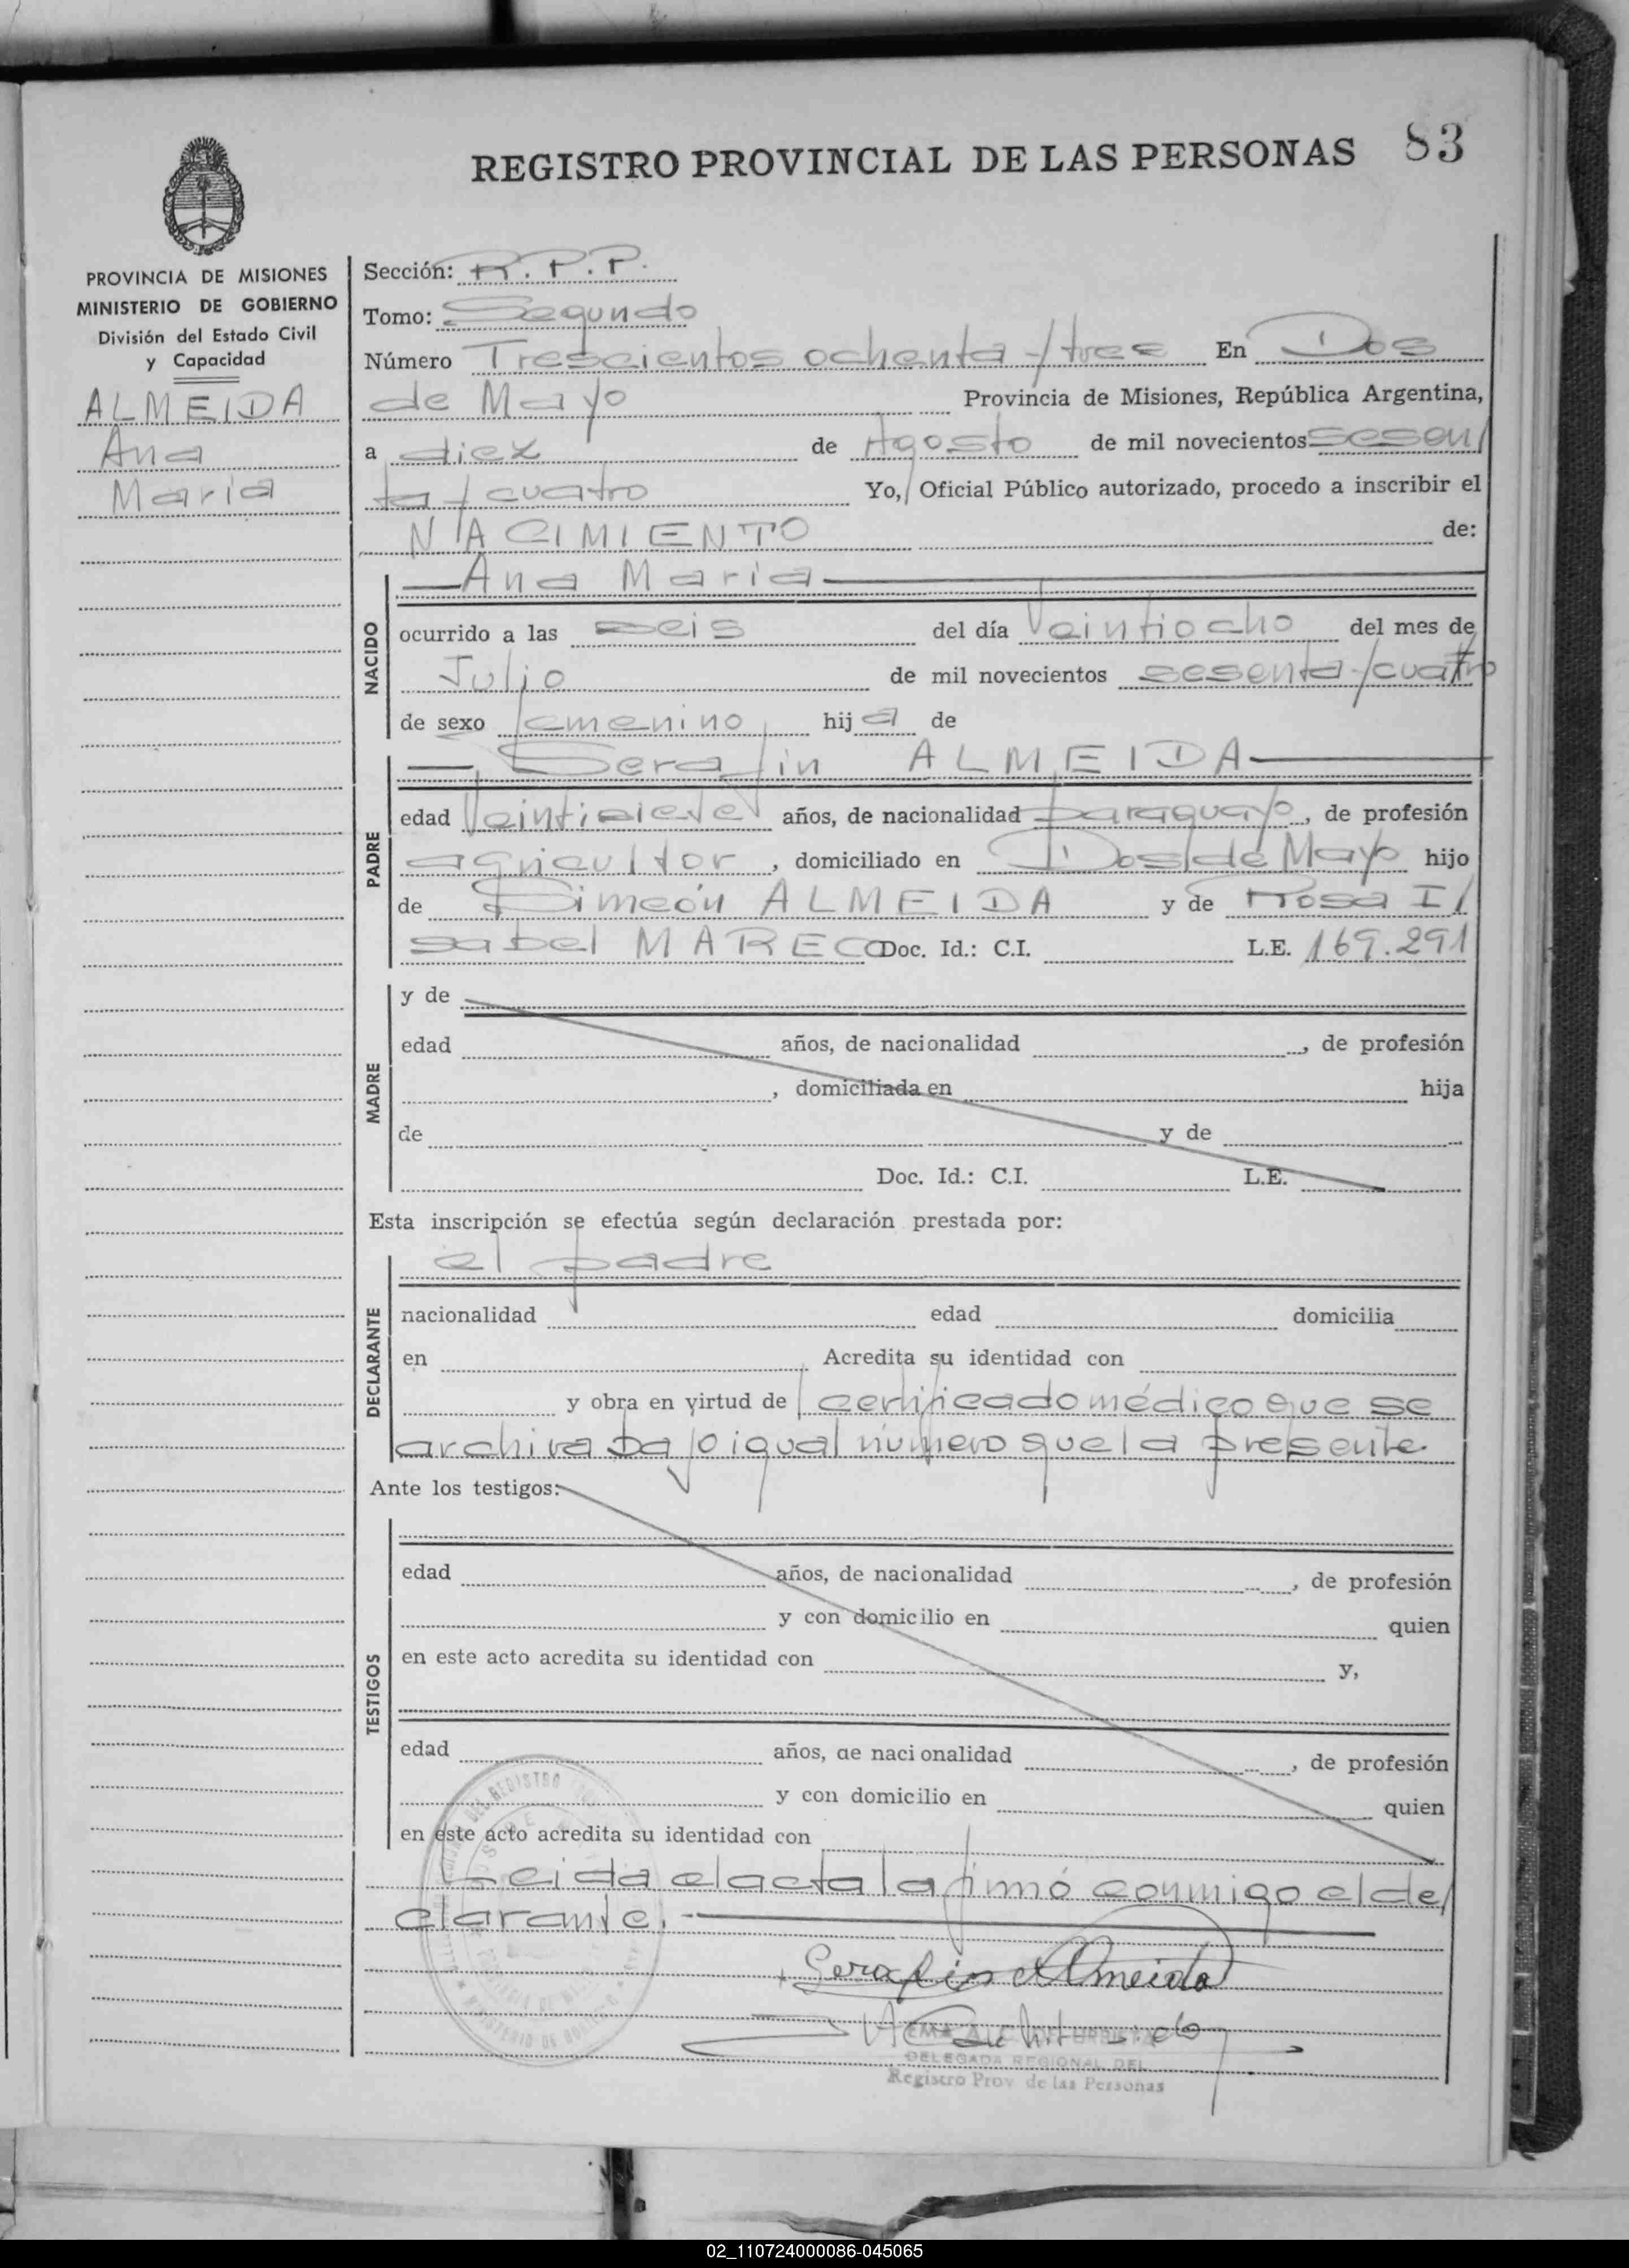 REGISTRO PROVINCIAL DE LAS PERSONAS 83
PROVINCIA DE MISIONES
MINISTERIO DE GOBIERNO
División del Estado Civil
y Capacidad
ALMEIDA
Ana
Maria
Sección: R.P.P.
Tomo: Segundo
Número Trescientos ochenta y tres En Dos
de Mayo Provincia de Misiones, República Argentina,
a diez de Agosto de mil novecientos sesen/
ta y cuatro Yo, Oficial Público autorizado, procedo a inscribir el
NACIMIENTO de:
NACIDO
Ana Maria
ocurrido a las seis del día Veintiocho del mes de
Julio de mil novecientos sesenta y cuatro
de sexo femenino hija de
PADRE
Serafin ALMEIDA
edad Veintisiete años, de nacionalidad paraguayo, de profesión
agricultor, domiciliado en Dos de Mayo hijo
de Simeón ALMEIDA y de Rosa I/
sabel MARECO Doc. Id.: C.I. L.E. 169.291
MADRE
y de
edad años, de nacionalidad , de profesión
, domiciliada en hija
de y de
Doc. Id.: C.I. L.E.
Esta inscripción se efectúa según declaración prestada por:
DECLARANTE
el padre
nacionalidad edad domicilia
en Acredita su identidad con
y obra en virtud de certificado médico que se
archiva bajo igual número que la presente.
Ante los testigos:
TESTIGOS
edad años, de nacionalidad , de profesión
y con domicilio en quien
en este acto acredita su identidad con y,
edad años, de nacionalidad , de profesión
y con domicilio en quien
en este acto acredita su identidad con
Leida el acta la firmó conmigo el de/
clarante.
Serafin Almeida
DELEGADA REGIONAL DEL
Registro Prov de las Personas
02_110724000086-045065